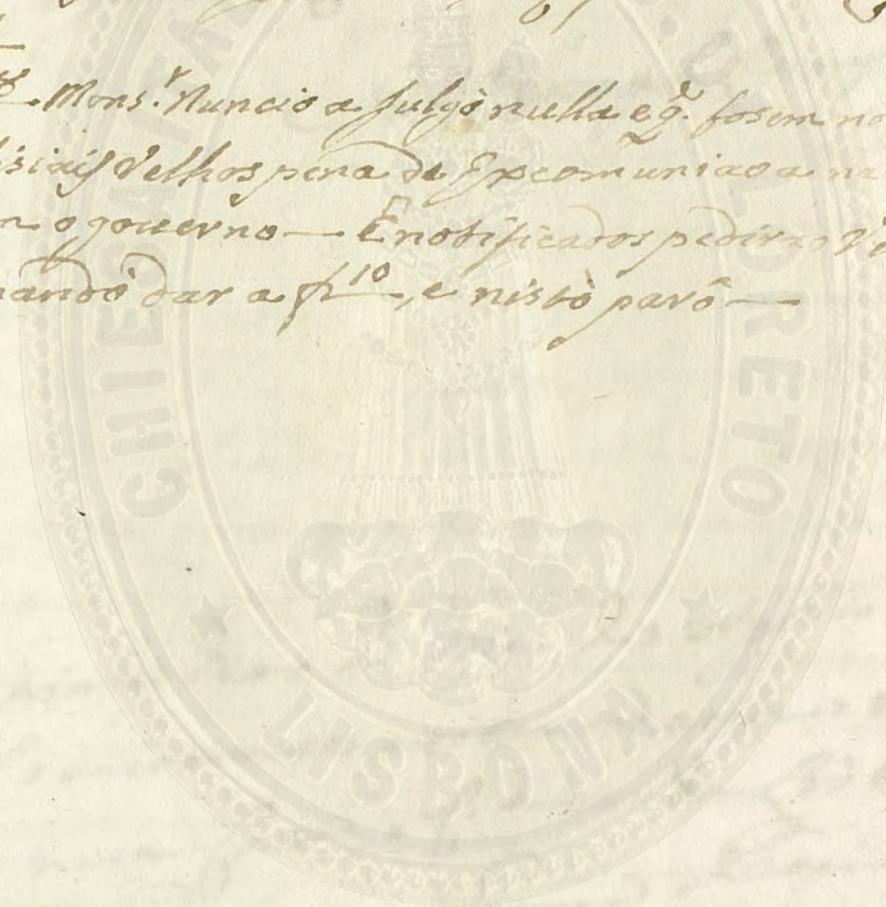 Mons.r Nuncio a Julgò nulla e q. fosem no
siais Velhos pena de Excomuniao a na
o governo — E notificados pedirao
mandò dar a f 10, e nistò parô —
CHIESA ITA
DI LORETO
LISBONA